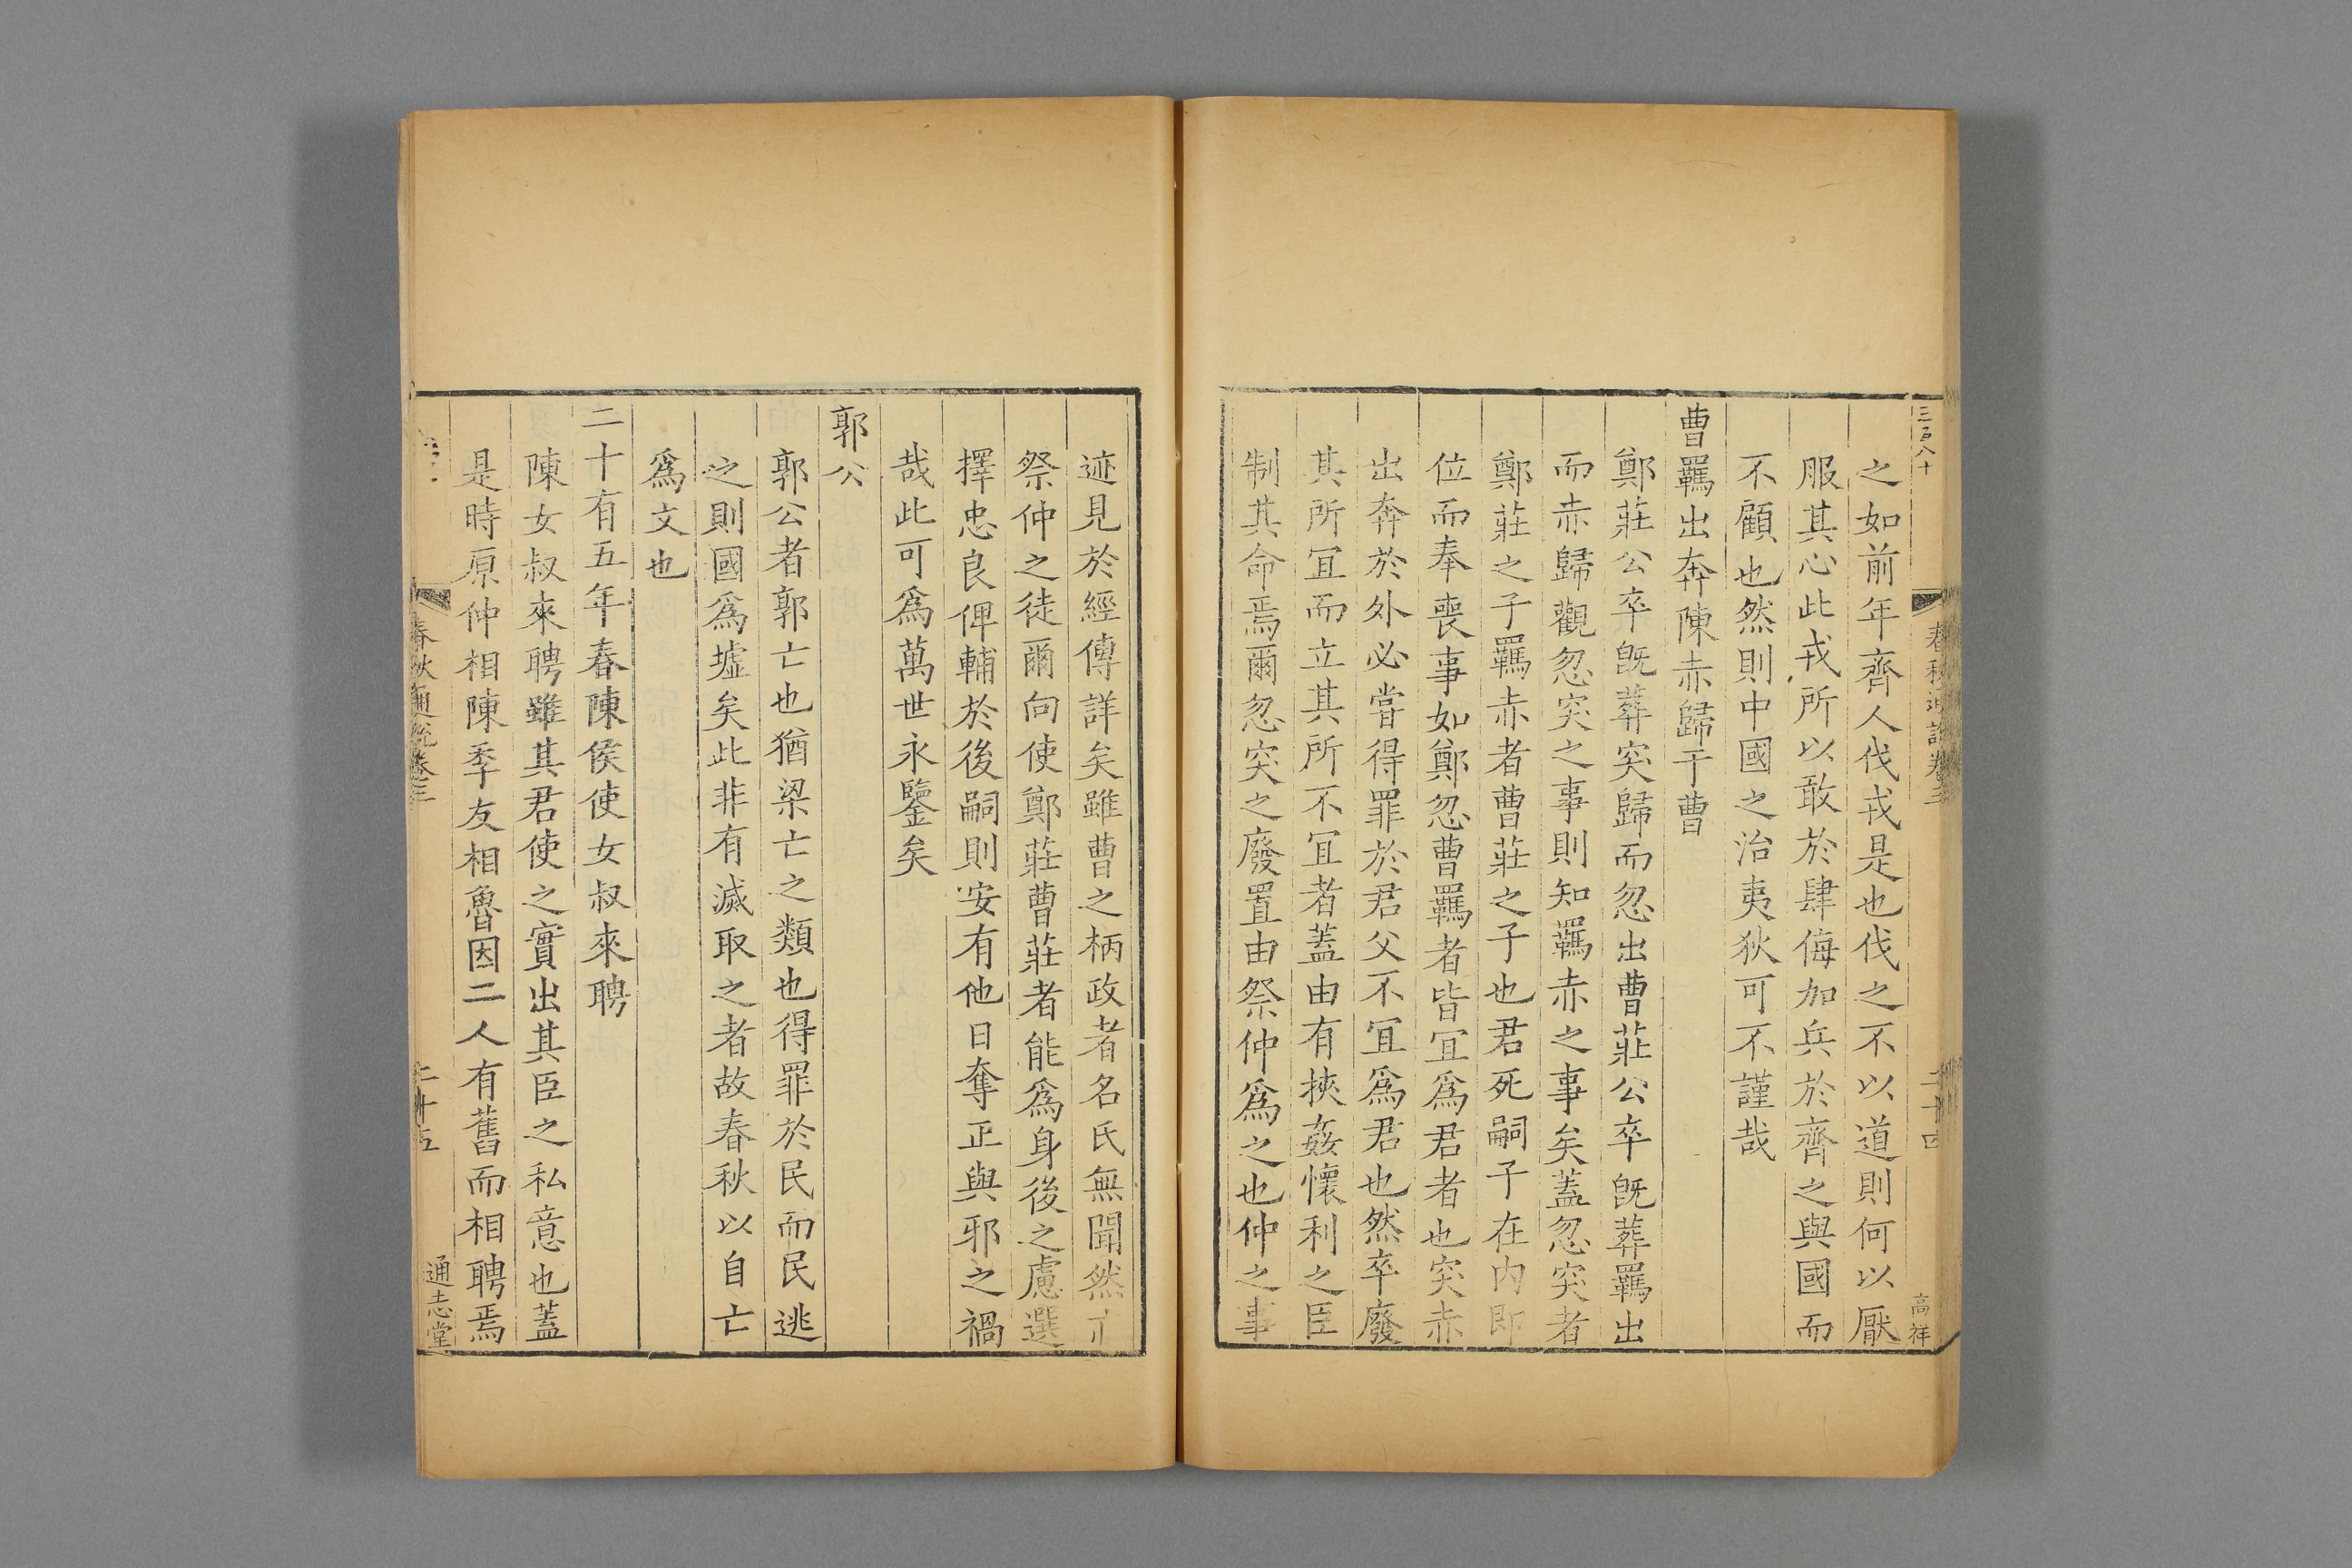 三百八十
春秋通說卷三
二十四
高祥
之如前年齊人伐戎是也伐之不以道則何以厭
服其心此戎所以敢於肆侮加兵於齊之與國而
不顧也然則中國之治夷狄可不謹哉
曹羈出奔陳赤歸于曹
鄭莊公卒旣葬突歸而忽出曹莊公卒旣葬羈出
而赤歸觀忽突之事則知羈赤之事矣蓋忽突者
鄭莊之子羈赤者曹莊之子也君死嗣子在內即
位而奉喪事如鄭忽曹羈者皆冝爲君者也突赤
出奔於外必嘗得罪於君父不冝爲君也然卒廢
其所冝而立其所不冝者蓋由有挾姦懷利之臣
制其命焉爾忽突之廢置由祭仲爲之也仲之事
迹見於經傳詳矣雖曹之柄政者名氏無聞然亦
祭仲之徒爾向使鄭莊曹莊者能爲身後之慮選
擇忠良俾輔於後嗣則安有他日奪正與邪之禍
哉此可爲萬世永鑒矣
郭公
郭公者郭亡也猶梁亡之類也得罪於民而民逃
之則國爲墟矣此非有滅取之者故春秋以自亡
爲文也
二十有五年春陳侯使女叔來聘
陳女叔來聘雖其君使之實出其臣之私意也蓋
是時原仲相陳季友相魯因二人有舊而相聘焉
春秋通說卷三
二十五
通志堂